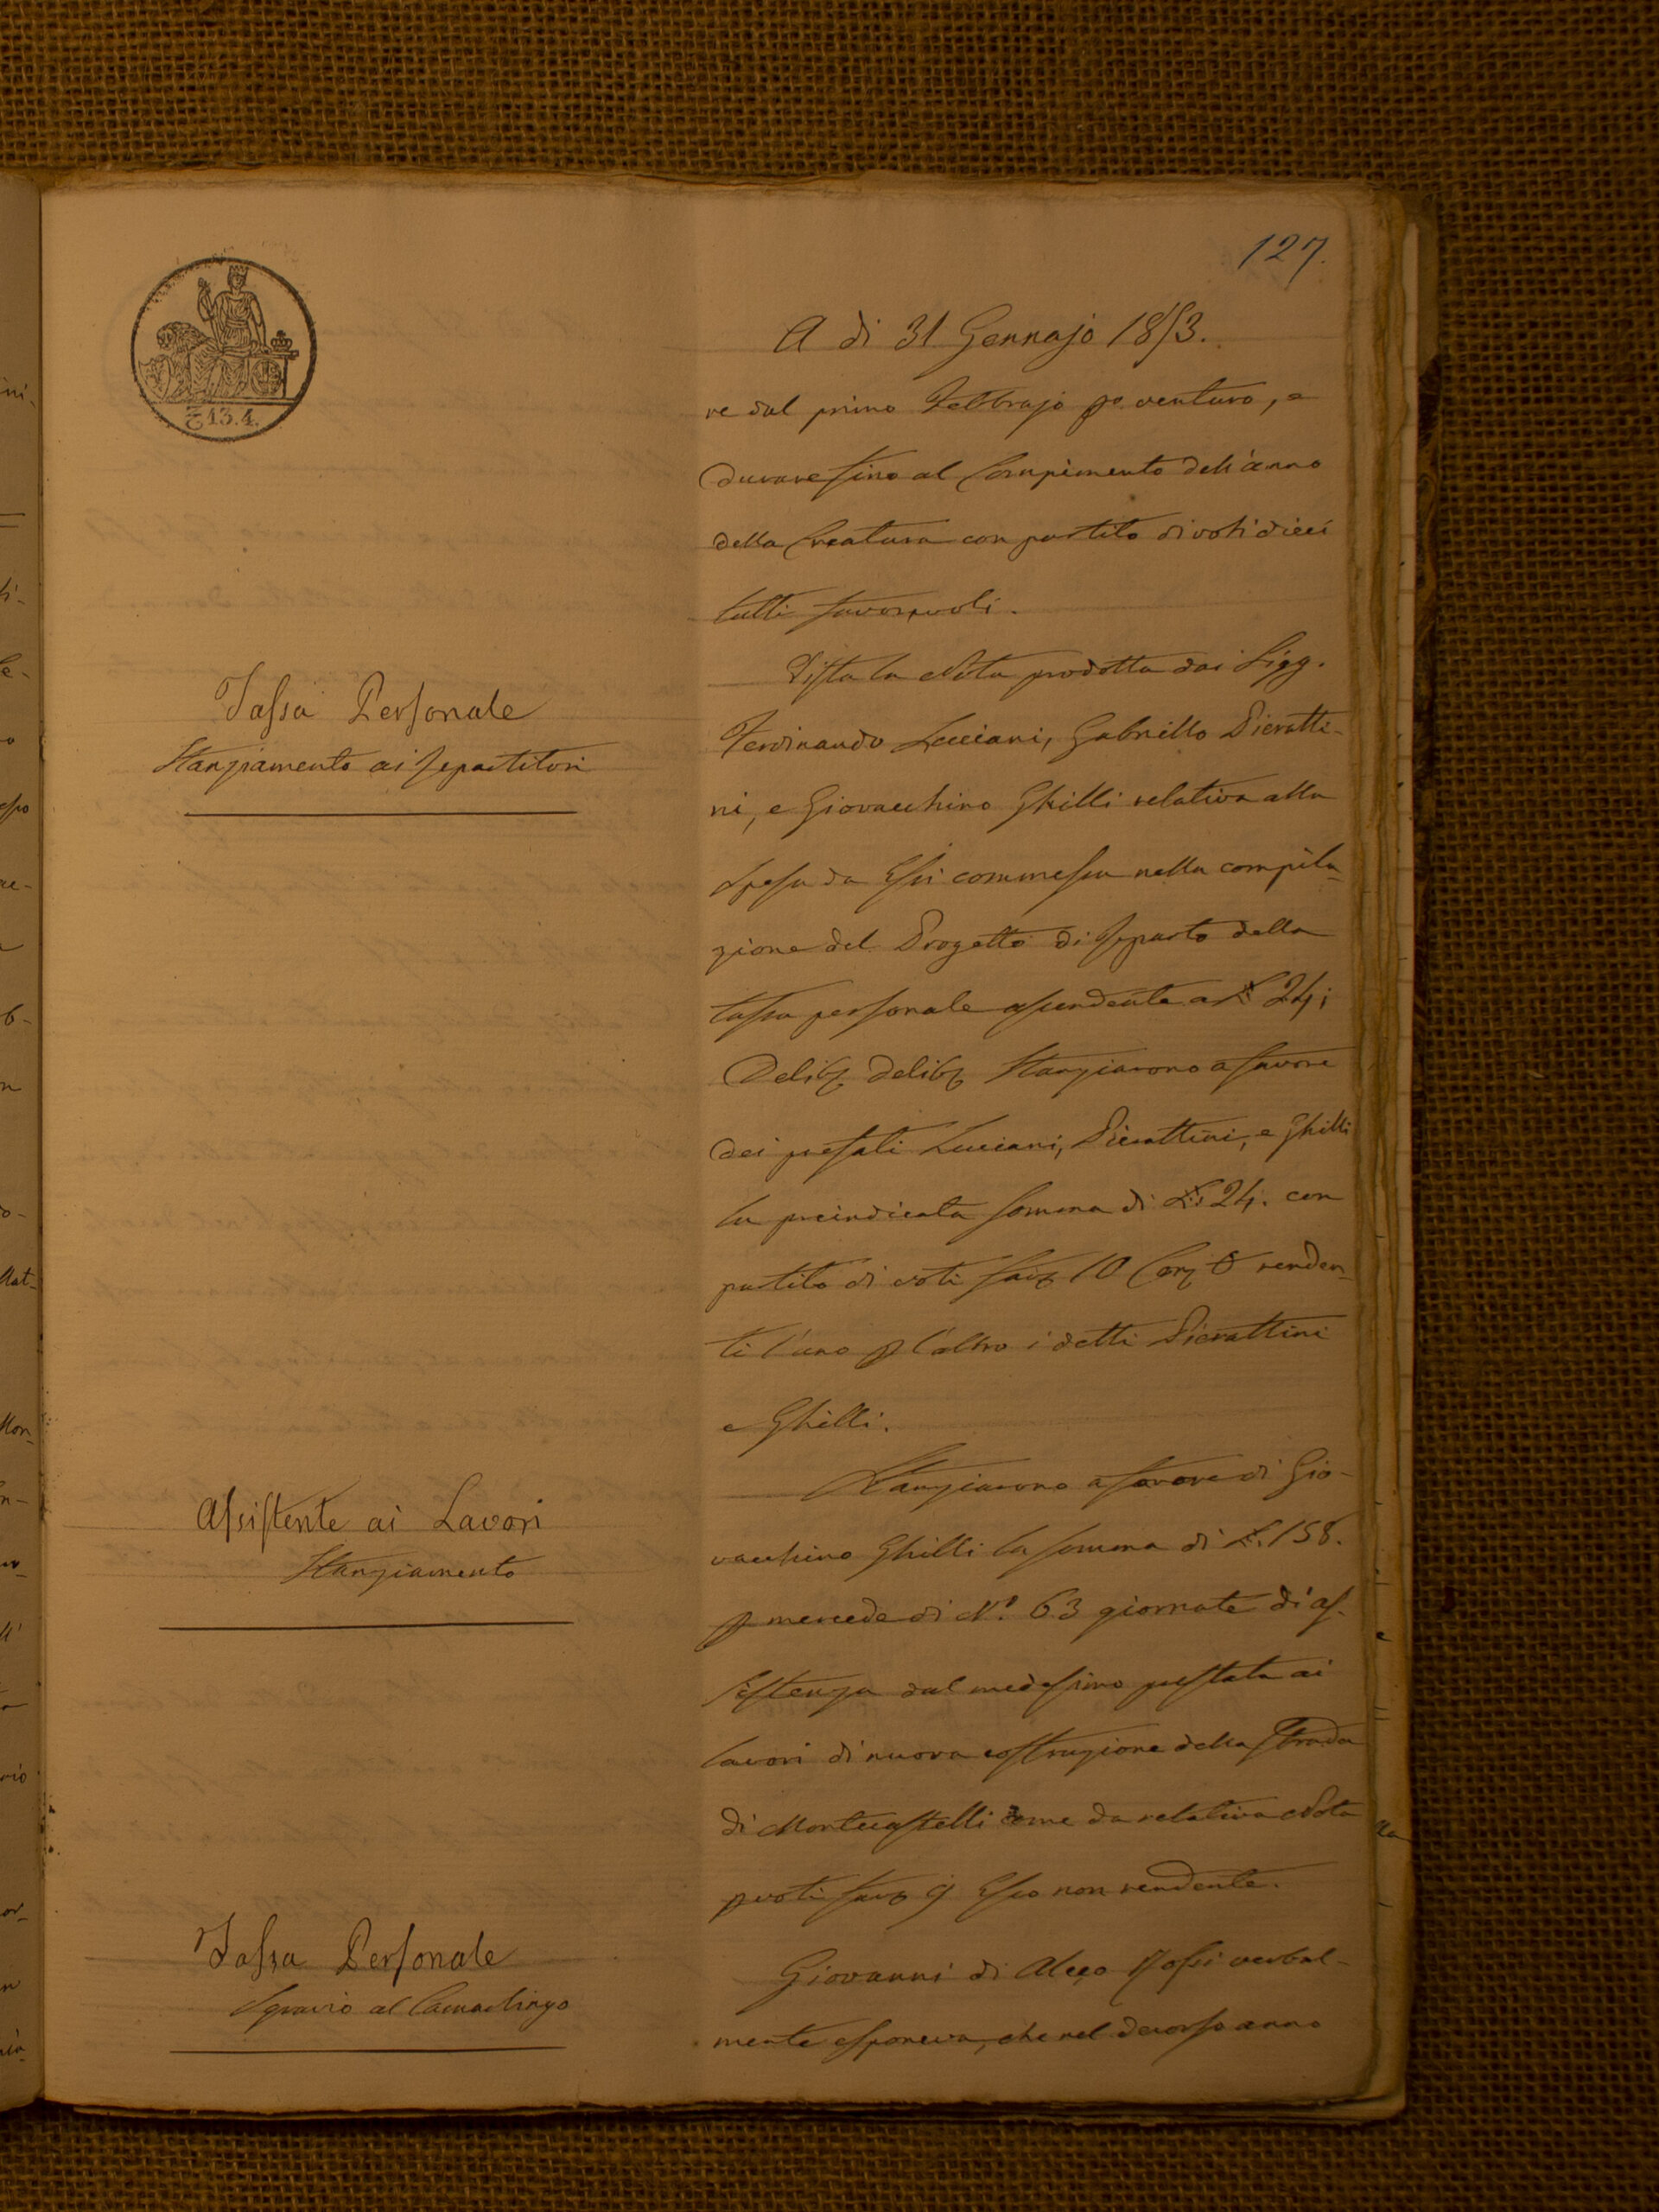 127.
C.mi 13.4.
A di 31 Gennajo 1853.
re dal primo Febbrajo po. venturo, e
durare fino al Compimento dell'anno
della Creatura con partito di voti dieci
tutti favorevoli.
Tassa Personale
Stanziamento ai Repartitori
Vista la Nota prodotta dai Sigg.
Ferdinando Luciani, Gabriello Pieratti-
ni, e Giovacchino Ghilli relativa alla
Spesa da Essi commessa nella compila-
zione del Progetto di Reparto della
tassa personale ascendente a £ 24;
Delib. delib. Stanziarono a favore
dei prefati Luciani, Pierattini, e Ghilli
la preindicata somma di £ 24. con
partito di voti fav. 10 Con. 0 renden-
ti l'uno p l'altro i detti Pierattini
e Ghilli.
Assistente ai Lavori
Stanziamento
Stanziarono a favore di Gio-
vacchino Ghilli la somma di £. 158.
p mercede di N.o 63 giornate di as-
sistenza dal medesimo prestata ai
lavori di nuova costruzione della Strada
di Montecastelli come da relativa Nota
p voti fav. 9 Esso non rendente.
Tassa Personale
Sgravio al Camarlingo
Giovanni di Rossi verbal-
mente esponeva, che nel decorso anno